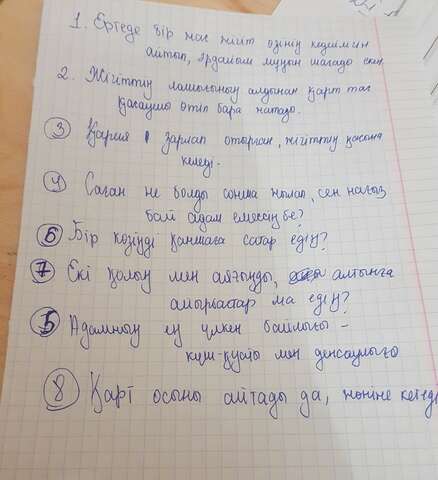 1. Ертеде бір жас жігіт өзінің кедейлігін
айтып, әрдайым мұңын шағады екен.
2. Жігіттің лашығының алдынан қарт тас
қашаушы өтіп бара жатады.
3 Қария зарлап отырған, жігіттің қасына
келеді.
4 Саған не болды сонша жылап, сен нағыз
бай адам емессің бе?
6 Бір көзіңді қаншаға сатар едің?
7 Екі қолың мен аяғыңды, алтынға
айырбастар ма едің?
5 Адамның ең үлкен байлығы -
күш-қуаты мен денсаулығо
8 Қарт осыны айтады да, жөніне кетеді